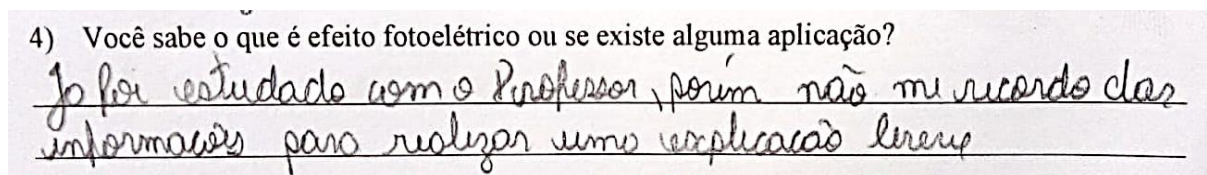 4) Você sabe o que é efeito fotoelétrico ou se existe alguma aplicação?
Ja foi estudado com o Professor, porém não me recordo das
informações para realizar uma explicacão breve